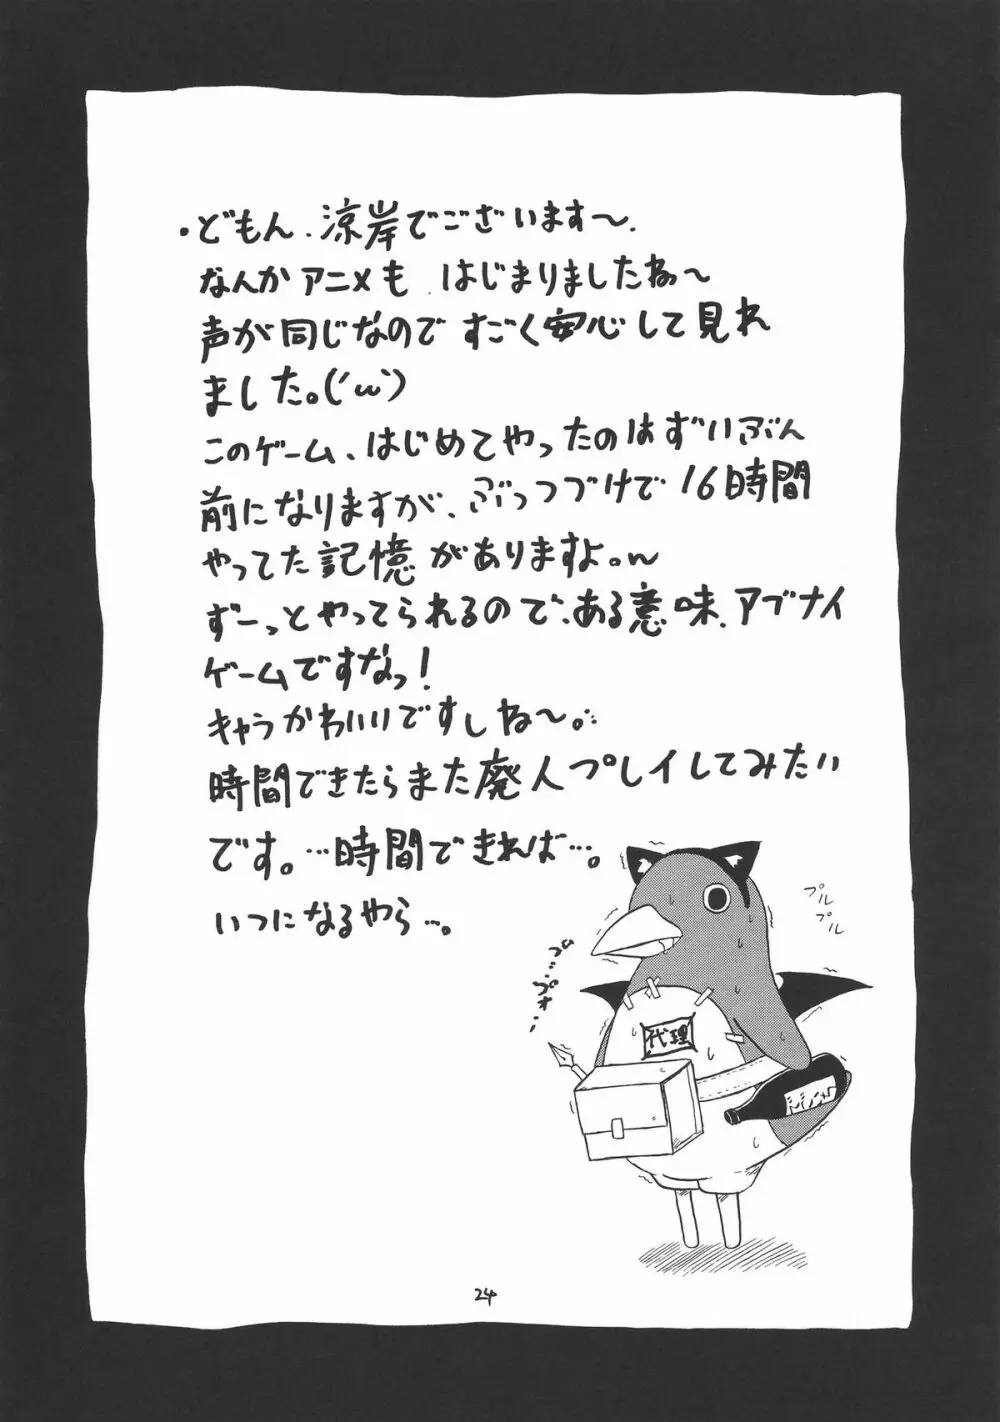 ・どもん、涼岸でございます〜.
なんかアニメも はじまりましたね〜
声が同じなので すごく安心して見れ
ました。(´ω`)
このゲーム、はじめてやったのはずいぶん
前になりますが、ぶっつづけで 16時間
やってた記憶がありますよ。w
ずーっとやってられるので、ある意味、アブナイ
ゲームですなっ!
キャラかわいいですしね〜。
時間できたらまた廃人プレイしてみたい
です。…時間できれば…。
いつになるやら…。
プル
プル
プ…プォ…
代理
24